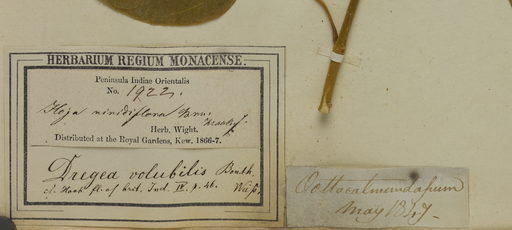 HERBARIUM REGIUM MONACENSE.
Peninsula Indiae Orientalis
No. 1922.
Hoja viridiflora Br.
Herb. Wight.
Distributed at the Royal Gardens, Kew. 1866-7.
Dregea volubilis Benth.
cf. Hook fl. of brit. Ind. IV. p. 46.
May 1847.